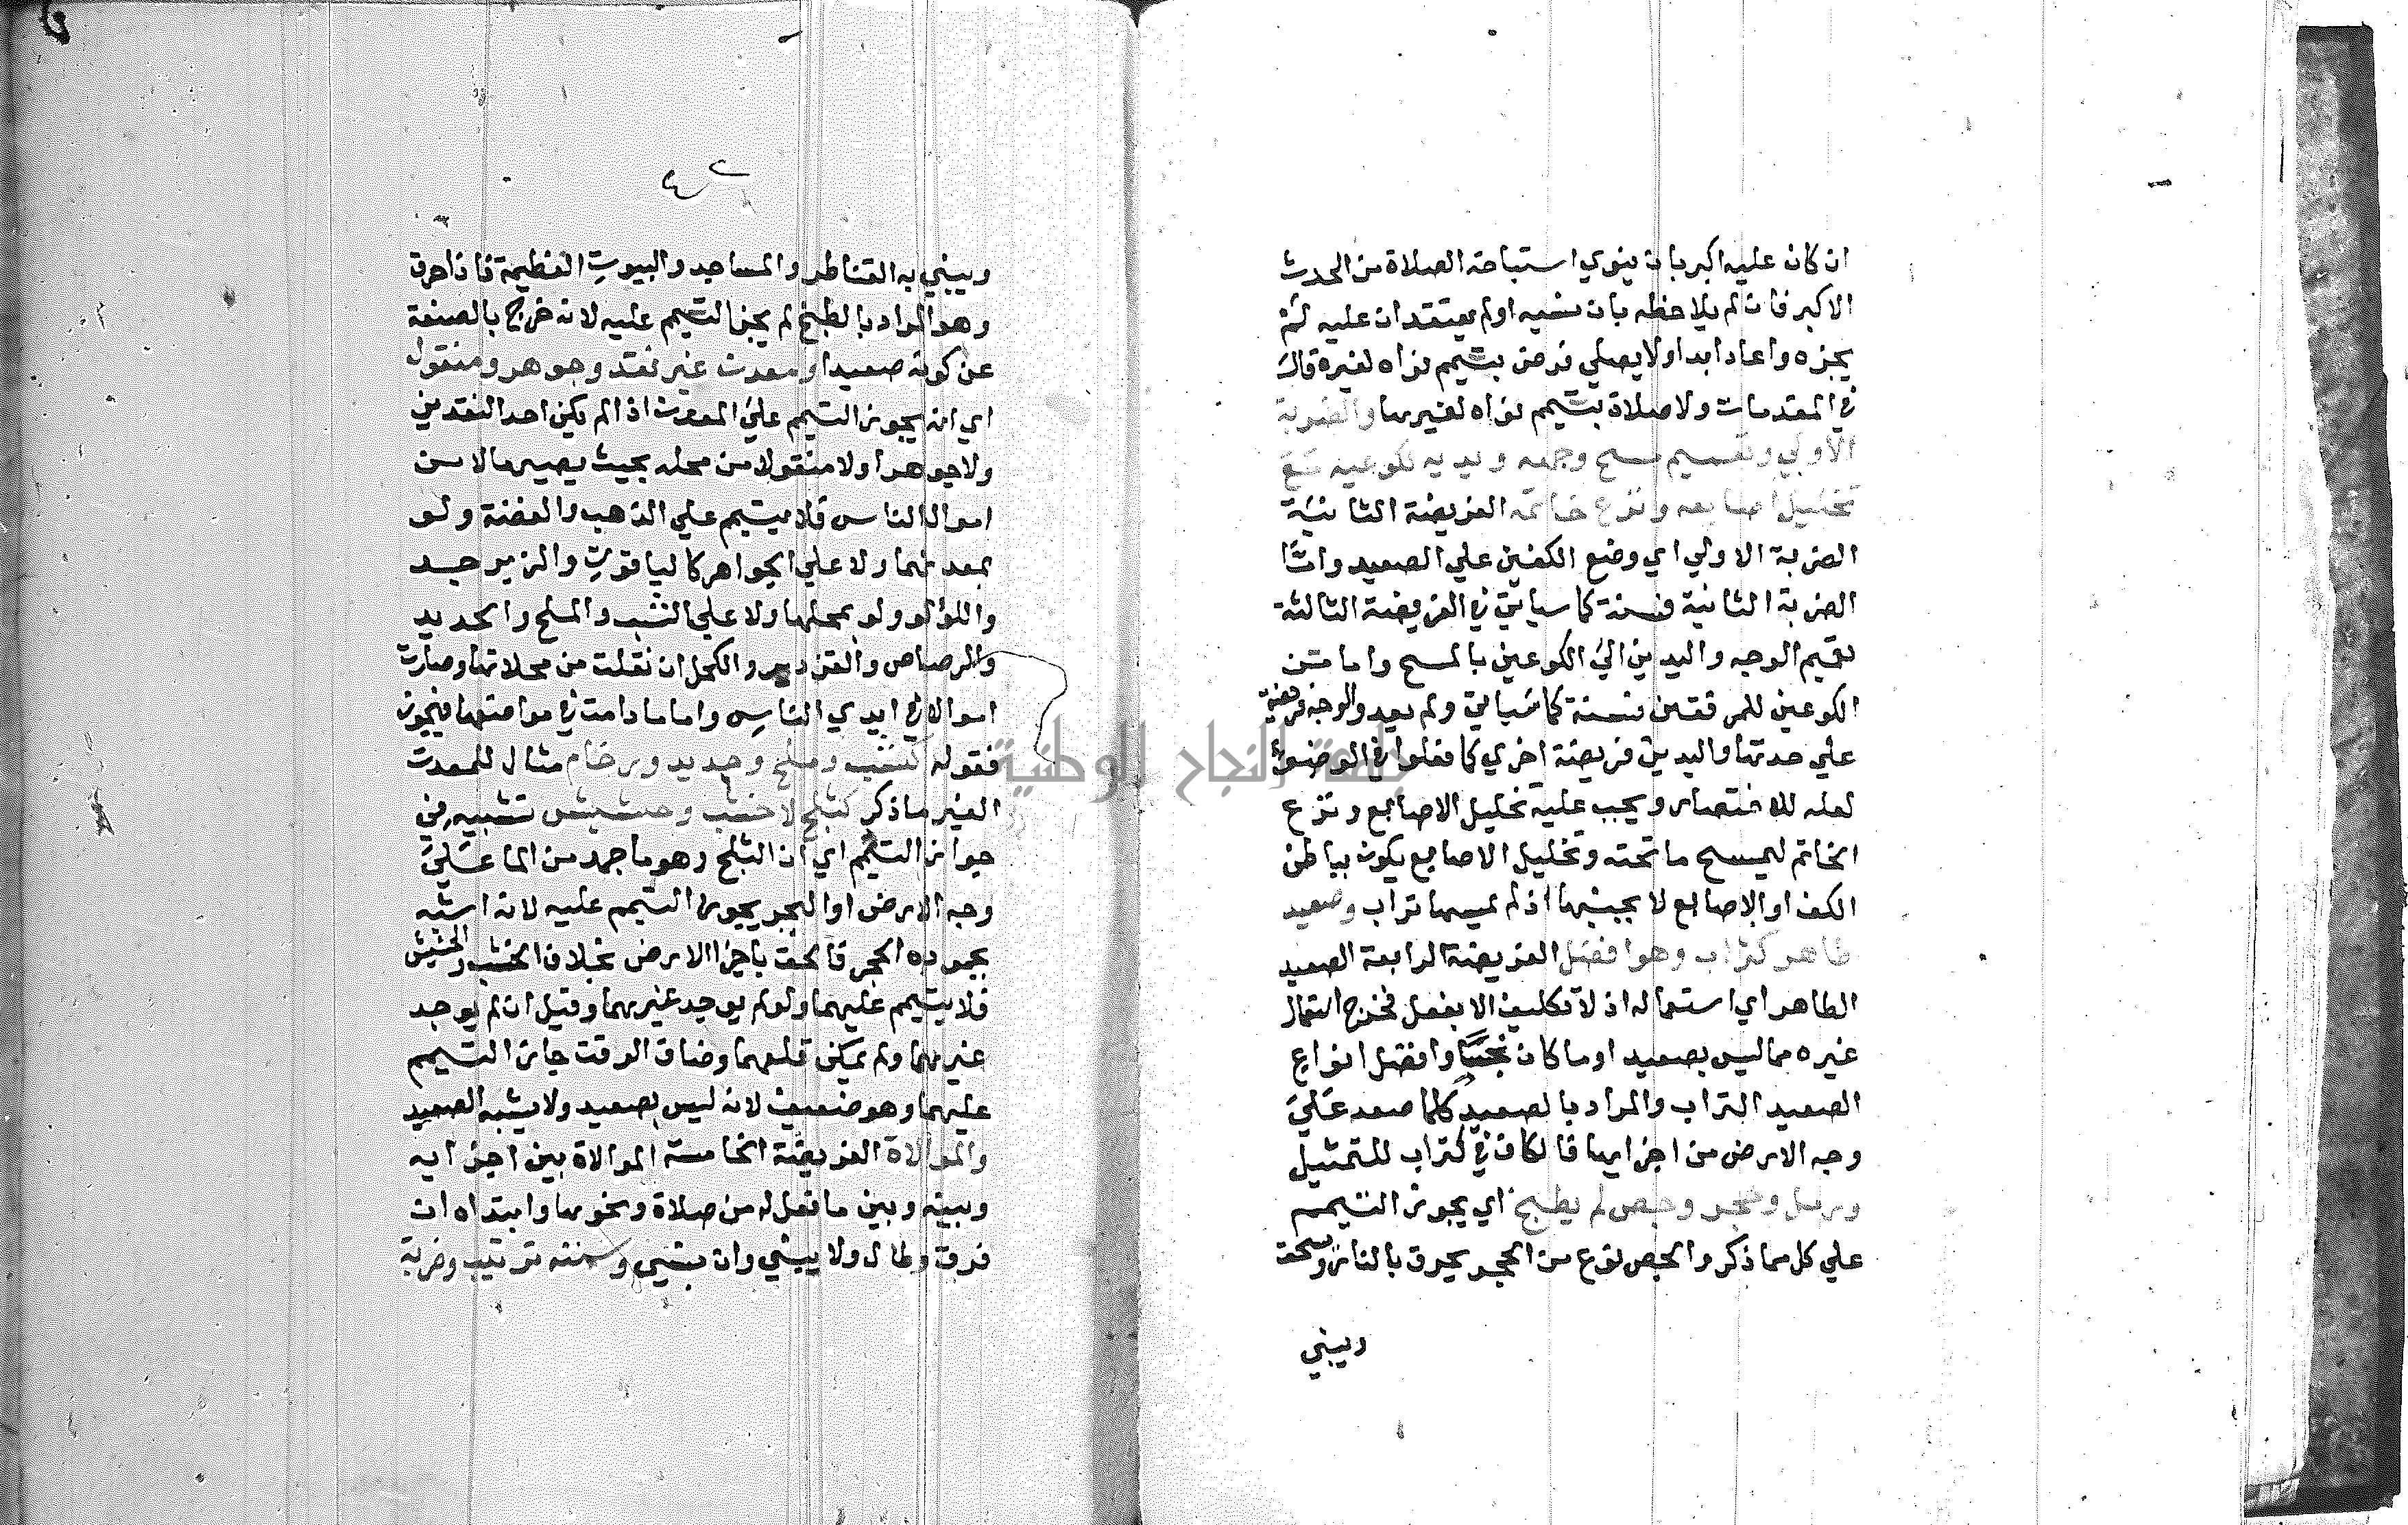 ان كان عليه اكبر بان ينوي استباحة الصلاة من الحدث
الاكبر فان لم يلاحظه بان نسيه او لم يعتقد ان عليه لم
يجزه واعاد ابدا ولا يصلي فرض بتيمم نواه لغيره قال
في المقدمات ولا صلاة بتيمم نواه لغيرها والضربة
الاولي وتعميم مسح وجهه ويديه لكوعيه مع
تخليل اصابعه ونزع خاتمه الفريضة الثانية
الضربة الاولي اي وضع الكفين علي الصعيد واما
الضربة الثانية فسنة كما سياتي في الفريضة الثالثة
تعميم الوجه واليدين الي الكوعين بالمسح واما من
الكوعين للمرفقين فسنة كما سياتي ولم يعد والوجه فريضة
علي حدتها واليدين فريضة اخري كما فعلوا في الوضوء
لعله للاختصار ويجب عليه تخليل الاصابع ونزع
الخاتم ليمسح ما تحته وتخليل الاصابع يكون بباطن
الكف او الاصابع لا بجنبها اذ لم يمسها تراب وصعيد
طاهر كتراب وهو افضل الفريضة الرابعة الصعيد
الطاهر اي استعماله اذ لا تكليف الا بفعل فخرج استعمال
غيره مما ليس بصعيد او ما كان نجسا وافضل انواع
الصعيد التراب والمراد بالصعيد كلما صعد علي
وجه الارض من اجزايها فالكاف في كتراب للتمثيل
ورمل وحجر وجبص لم يطبخ اي يجوز التيمم
علي كل مما ذكر والجبص نوع من الحجر يحرق بالنار ويسحق
ويبني
ويبني به القناطر والمساجد والبيوت العظيمة فاذا احرق
وهو المراد بالطبخ لم يجز التيمم عليه لانه خرج بالصنعة
عن كونه صعيدا ومعدن غير نقد وجوهر ومنقول
اي انه يجوز التيمم علي المعدن اذا لم يكن احد النقدين
ولا جوهرا ولا منقولا من محله بحيث يصير مالا من
اموال الناس فلا يتيمم علي الذهب والفضة ولو
بمعدنهما ولا علي الجواهر كالياقوت والزبرجد
واللؤلؤ ولو بمحلها ولا علي الشب والملح والحديد
والرصاص والقزدير والكحل ان نقلت من محلاتها وصارت
اموالا في ايدي الناس واما ما دامت في مواضعها فيجوز
فقوله كشب وملح وحديد ورخام مثال للمعدن
الغير ما ذكر كثلج لا خشب وحشيش تشبيه في
جواز التيمم اي ان الثلج وهو ما جمد من الما علي
وجه الارض او البحر يجوز التيمم عليه لانه اشبه
بجموده الحجر فالحق باجزا الارض بخلاف الخشب والحشيش
فلا يتيمم عليهما ولو لم يوجد غيرهما وقيل ان لم يوجد
غيرهما ولم يمكن قلعهما وضاق الوقت جاز التيمم
عليهما وهو ضعيف لانه ليس بصعيد ولا يشبه الصعيد
والموالاة الفريضة الخامسة الموالاة بين اجزايه
وبينه وبين ما فعل له من صلاة ونحوها وابتداه ان
فرق وطال ولا يبني وان نسي وسننه ترتيب وضربة
جامعة النجاح الوطنية